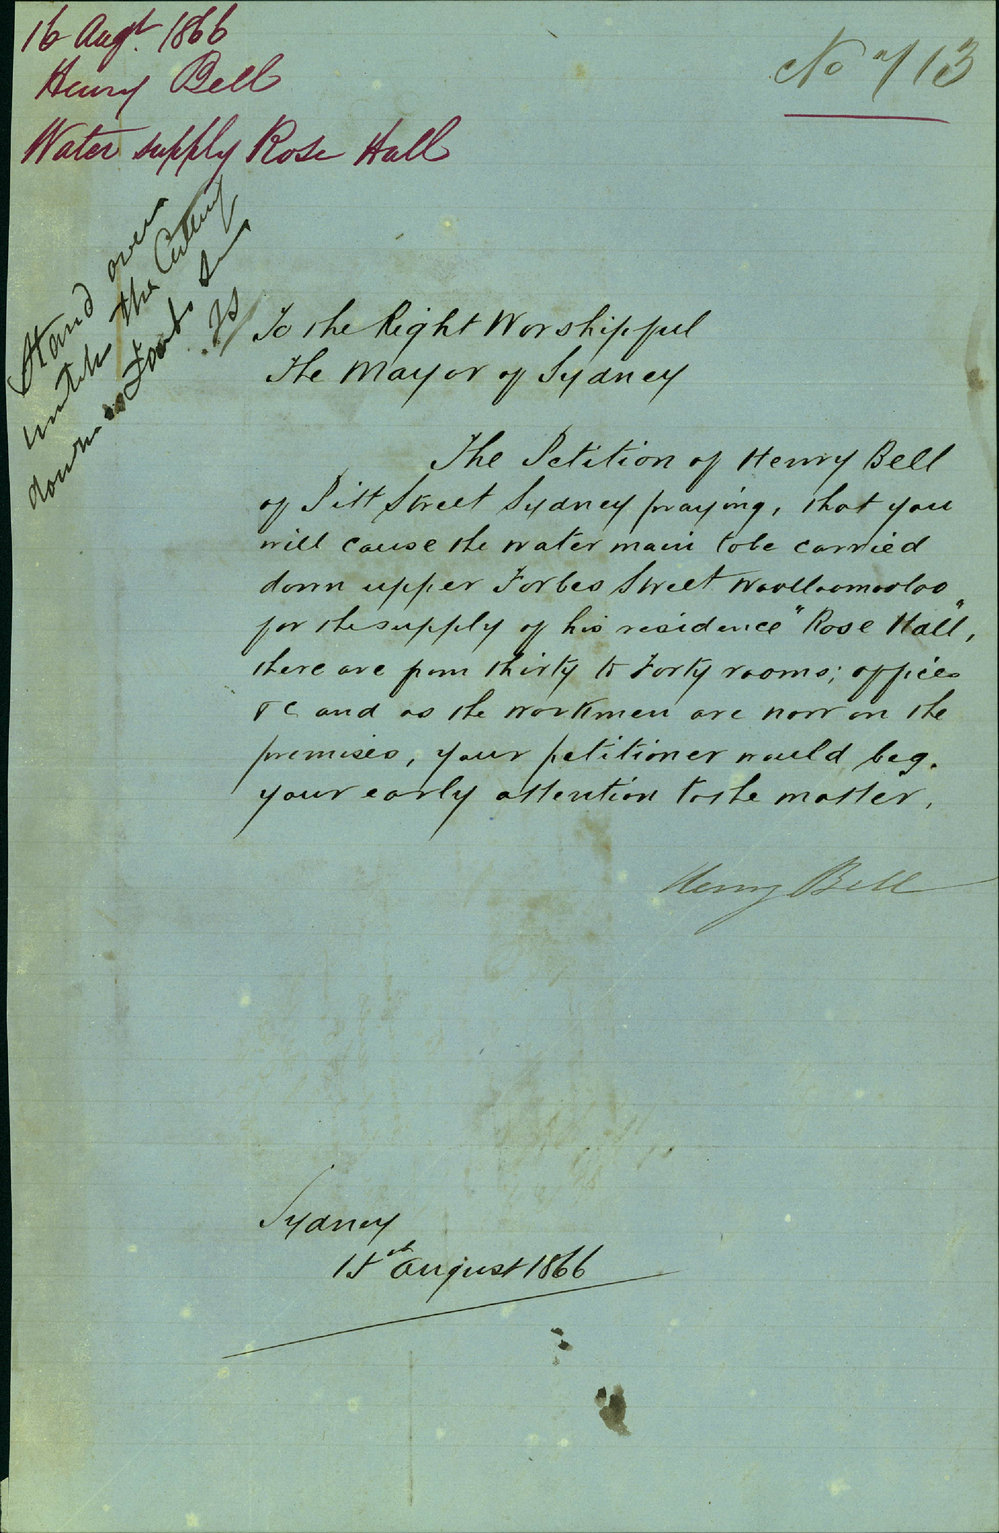 16 Augt. 1866
Henry Bell
Water supply Rose Hall
No 713
Stand over
until the Cutting
down is Forbes
To the Right Worshipful
The Mayor of Sydney
The Petition of Henry Bell
of Pitt Street Sydney praying, that you
will cause the water main to be carried
down upper Forbes Street Woolloomooloo
for the supply of his residence "Rose Hall",
there are from thirty to Forty rooms; offices
&c and as the workmen are now on the
premises, your petitioner would beg.
your early attention to the matter.
Henry Bell
Sydney
15th August 1866